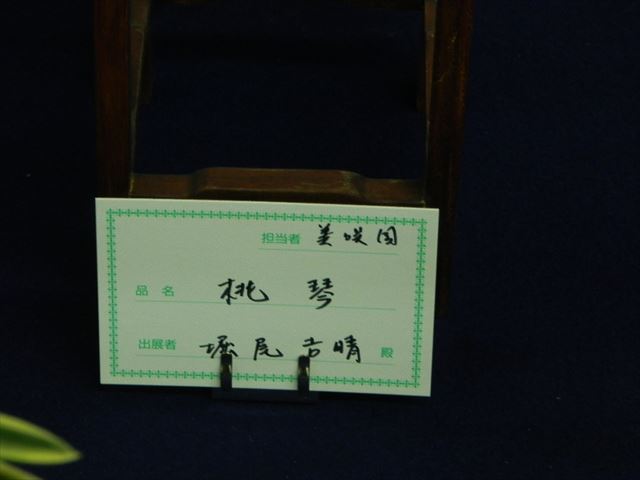 担当者 美咲園
品名 桃琴
出展者 堀尾吉晴 殿